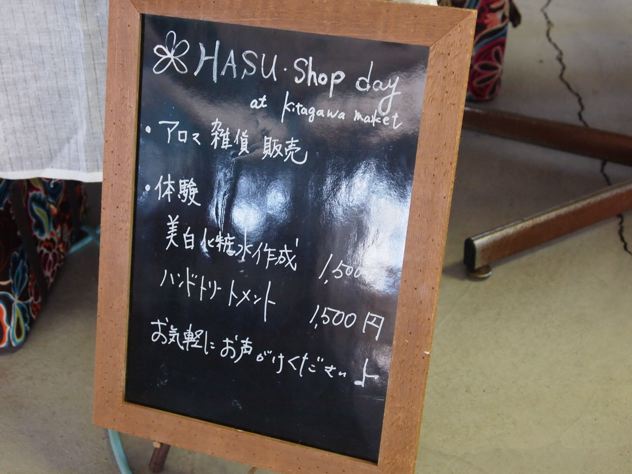 HASU・Shop day
at kitagawa maket
・アロマ 雑貨 販売
・体験
美白化粧水作成 1,500
ハンドトリートメント 1,500円
お気軽にお声がけください♪